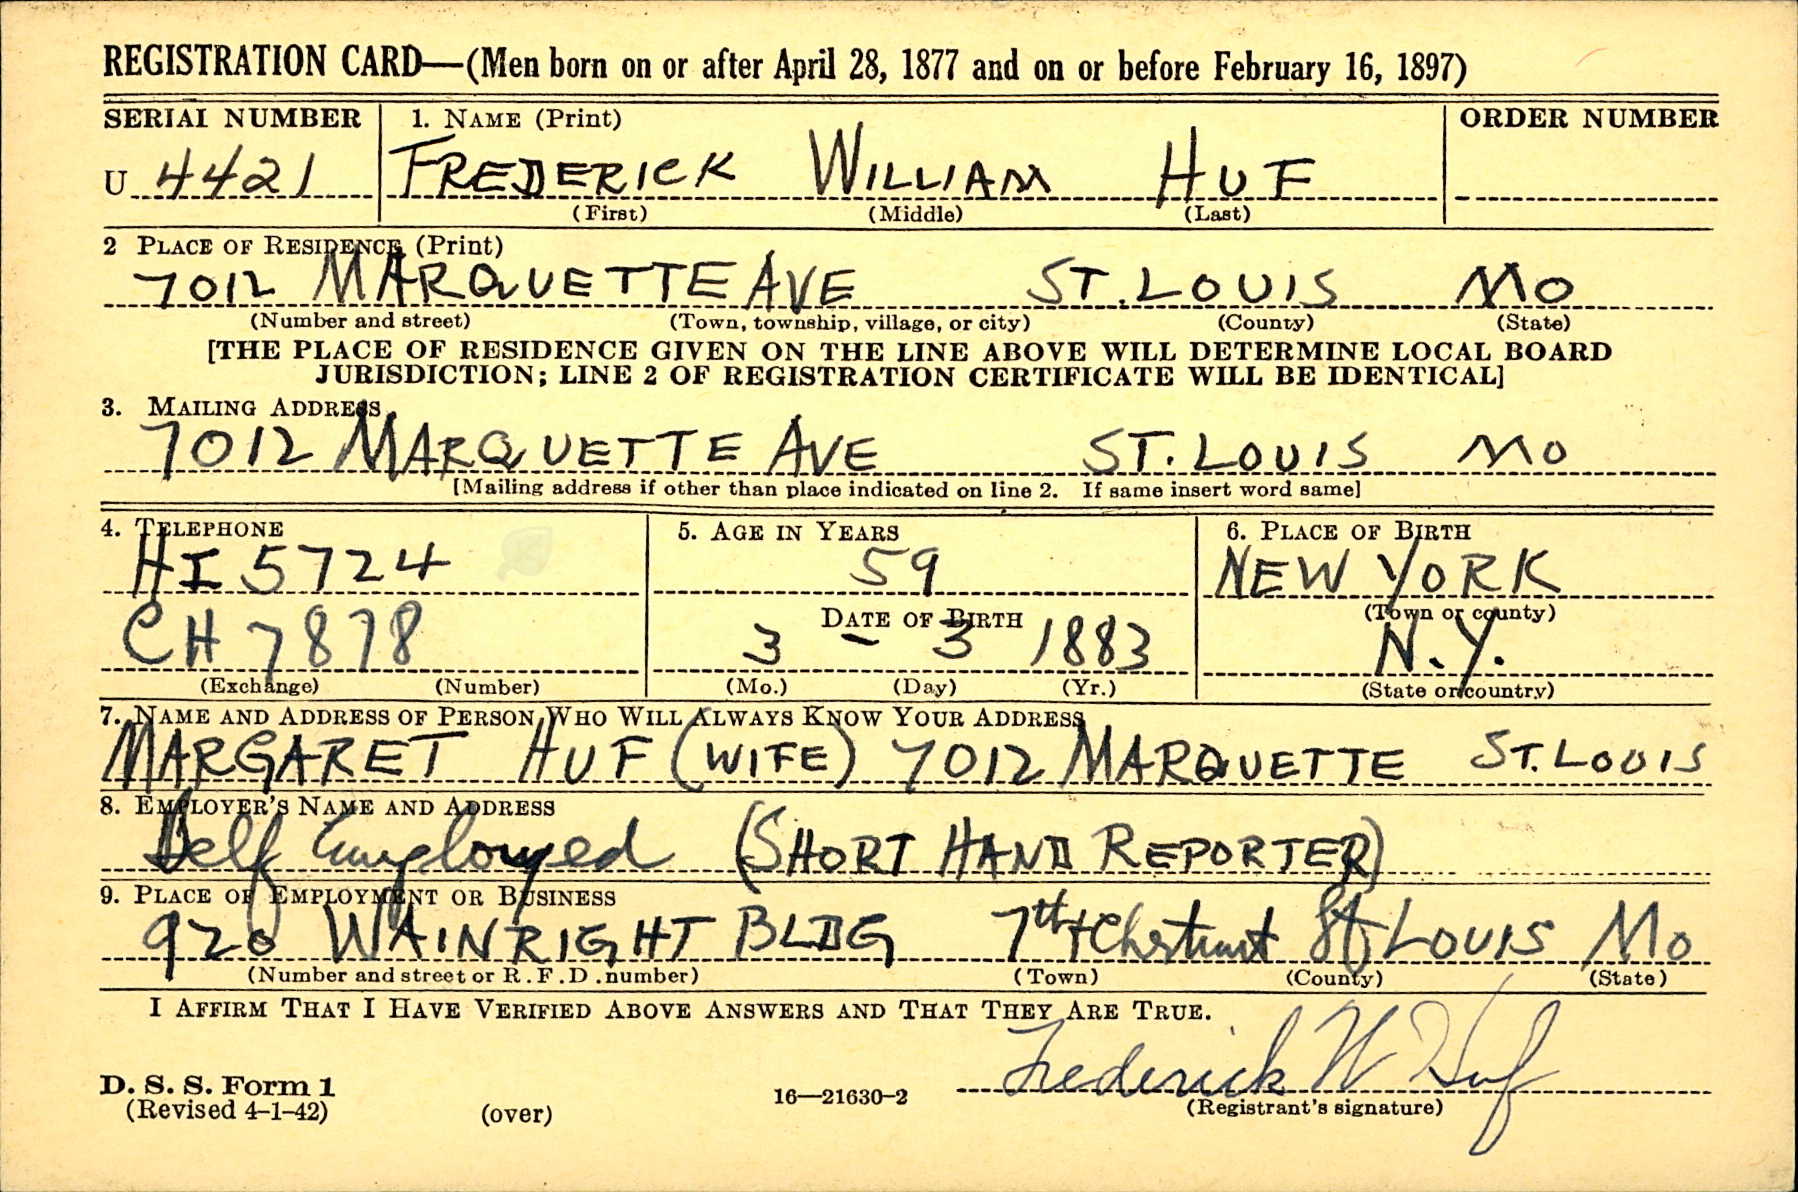 REGISTRATION CARD—(Men born on or after April 28, 1877 and on or before February 16, 1897)
SERIAL NUMBER 1. NAME (Print) ORDER NUMBER
U 4421 FREDERICK WILLIAM HUF
(First) (Middle) (Last)
2 PLACE OF RESIDENCE (Print)
7012 MARQUETTE AVE ST. LOUIS MO
(Number and street) (Town, township, village, or city) (County) (State)
[THE PLACE OF RESIDENCE GIVEN ON THE LINE ABOVE WILL DETERMINE LOCAL BOARD
JURISDICTION; LINE 2 OF REGISTRATION CERTIFICATE WILL BE IDENTICAL]
3. MAILING ADDRESS
7012 MARQUETTE AVE ST. LOUIS MO
[Mailing address if other than place indicated on line 2. If same insert word same]
4. TELEPHONE 5. AGE IN YEARS 6. PLACE OF BIRTH
HI 5724 59 NEW YORK
DATE OF BIRTH (Town or county)
CH 7878 3 - 3 1883 N.Y.
(Exchange) (Number) (Mo.) (Day) (Yr.) (State or country)
7. NAME AND ADDRESS OF PERSON WHO WILL ALWAYS KNOW YOUR ADDRESS
MARGARET HUF (WIFE) 7012 MARQUETTE ST. LOUIS
8. EMPLOYER'S NAME AND ADDRESS
Self Employed (SHORT HAND REPORTER)
9. PLACE OF EMPLOYMENT OR BUSINESS
920 WAINRIGHT BLDG 7th + Chestnut St LOUIS MO
(Number and street or R.F.D. number) (Town) (County) (State)
I AFFIRM THAT I HAVE VERIFIED ABOVE ANSWERS AND THAT THEY ARE TRUE.
Frederick W Huf
D. S. S. Form 1
(Revised 4-1-42) (over) 16—21630-2 (Registrant's signature)